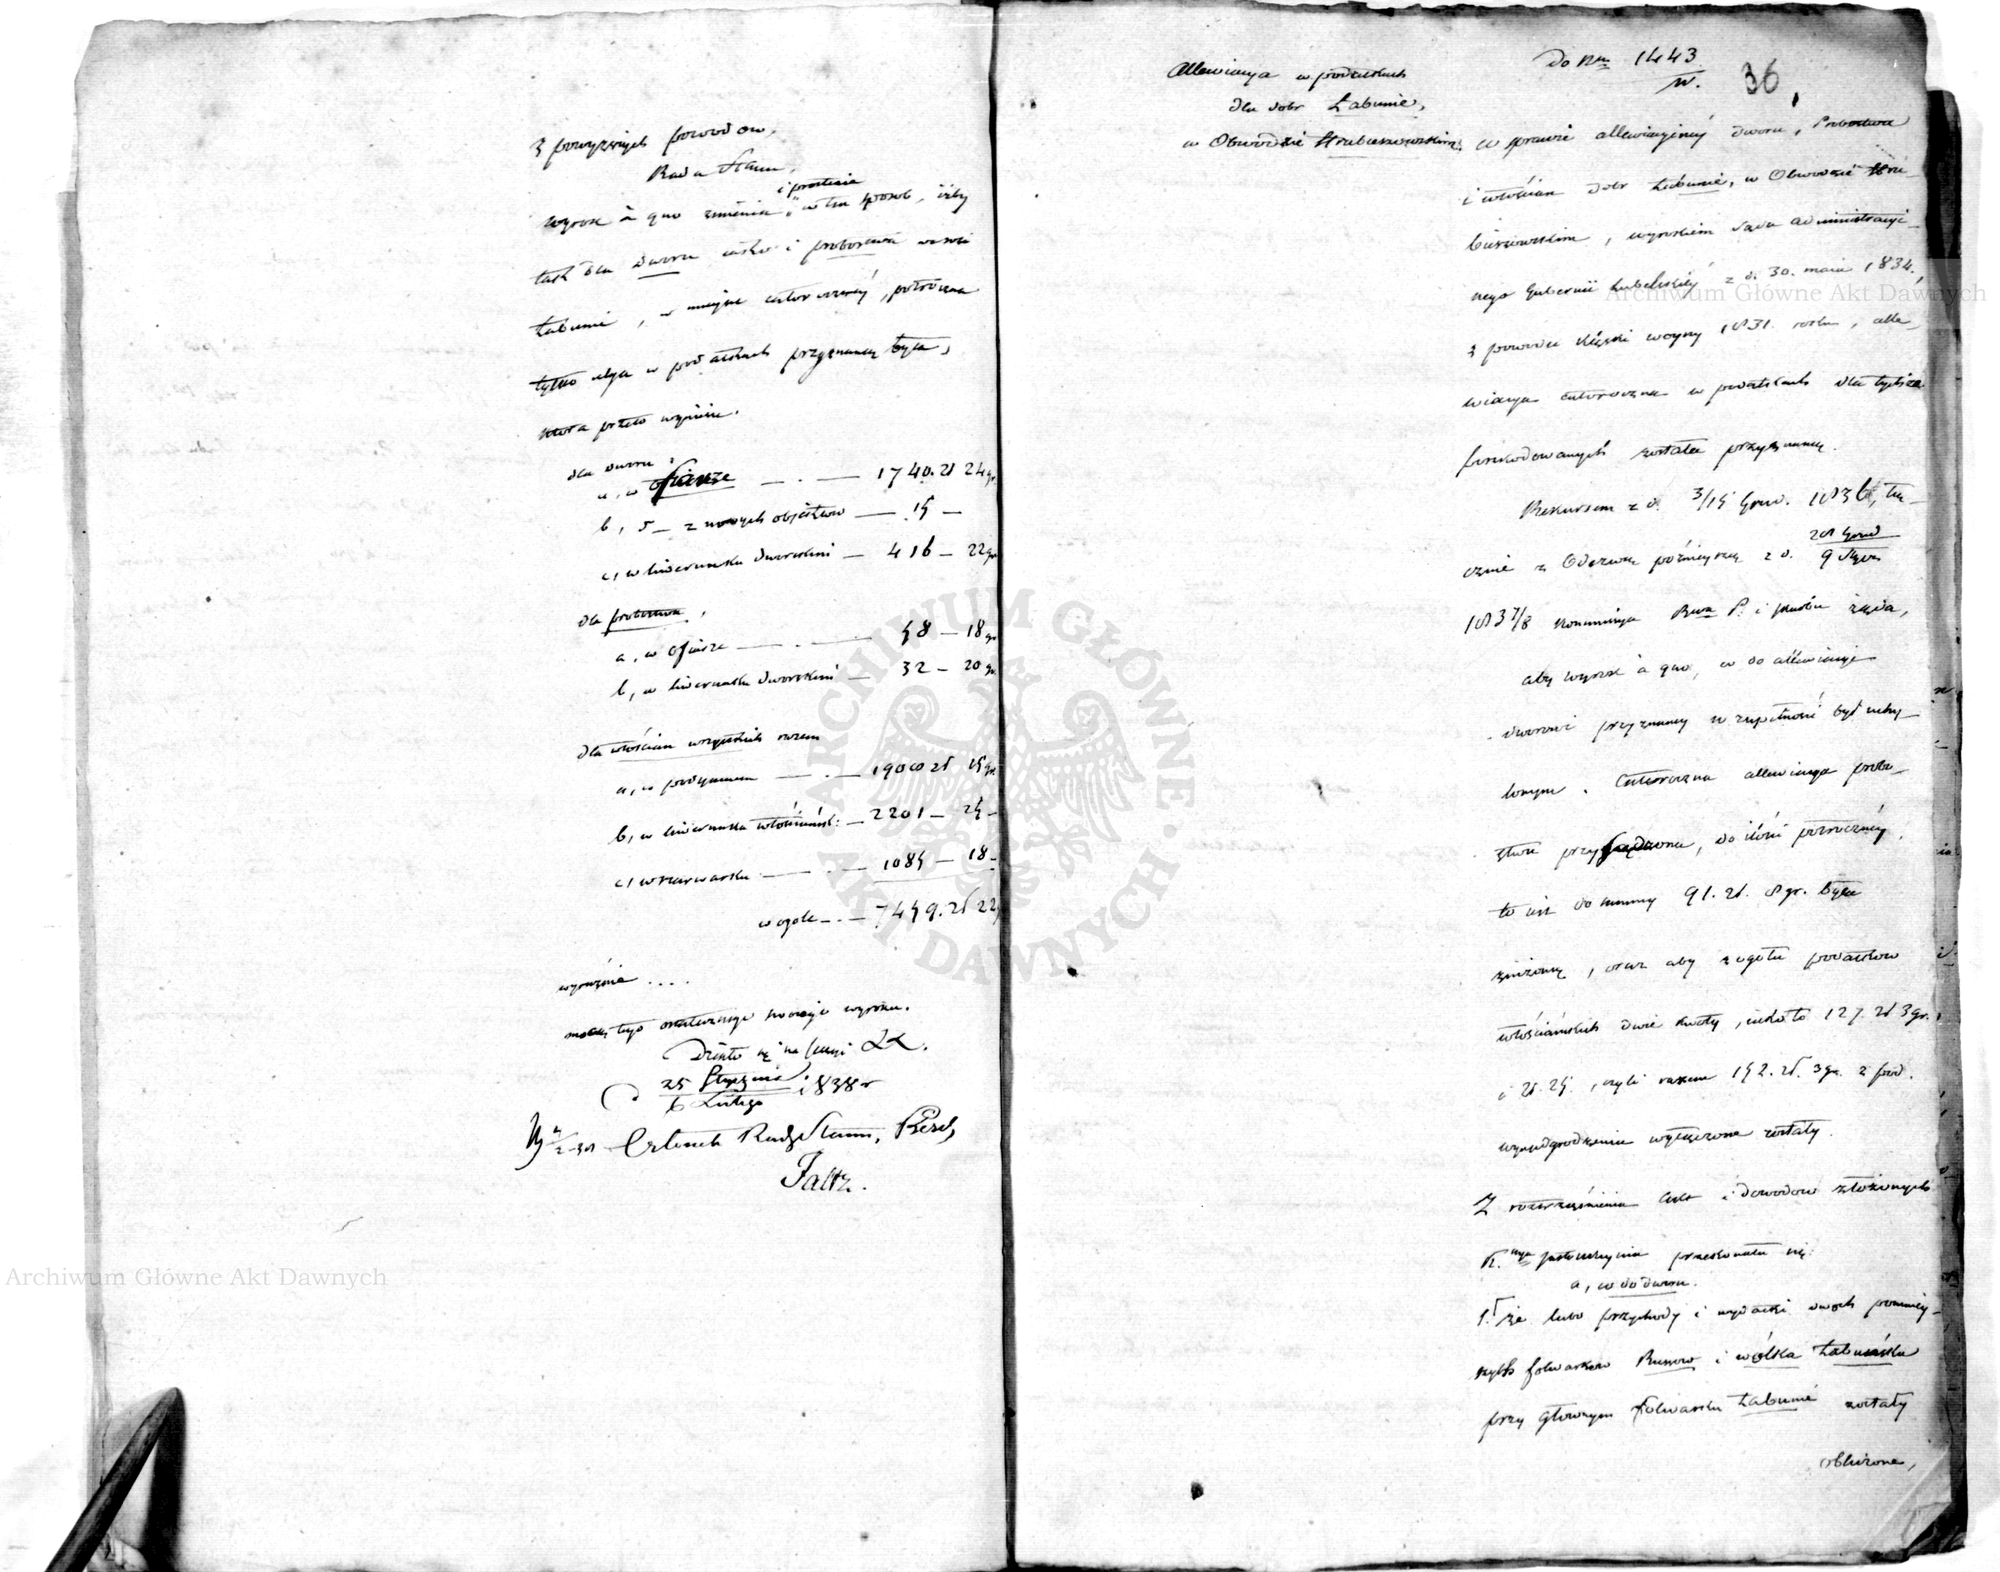 z powyższych powodów,
Rada Stanu,
i prostuie
wyrok à quo zmienia w ten sposób, iżby
tak dla dworu iako i probostwa w wsi
Łabunie, w mieysce całorocznéy, półroczna
tylko ulga w podatkach przyznaną była,
która przeto wyniesie.
dla dworu:
a, w ofiarze — . — 1740. zł 24 gr.
b, z nowych obiektów — 15 —
c, w liwerunku dworskim — 416 — 22 gr.
dla probostwa,
a, w ofiarze — . — 58 — 18 gr
b, w liwerunku dworskim — 32 — 20 gr.
dla włościan wszystkich razem
a, w podymnem — . — zł 15 gr.
b, w liwerunku włościańsk: — 2201 — 25 —
c, w szarwarku — . — 1085 — 18 —
w ogóle — . — 7459. zł 22
wyraźnie . . . .
mocą tego ostatecznego swoiego wyroku.
Działo się na Sessyi
25 Stycznia
6 Lutego 1838 r
Członek Rady Stanu, Prezes
Faltz.
Allewiacya w podatkach
dla dobr Łabunie,
w Obwodzie Hrubieszowskim
Do Nru 1443
W.
36
w sprawie allewiacyinéy dworu, Probostwa
i włościan dobr Łabunie, w Obwodzie Hru-
bieszowskim, wyrokiem Sądu Administracyi-
nego Gubernii Lubelskiéy z d. 30. maia 1834.,
z powodu klęski woyny 1831. roku, alle-
wiacya całoroczna w podatkach dla tychże
poszkodowanych została przyznaną.
Rekursem z d. 3/15 Grud. 1836, łą-
cznie z Odezwą późnieyszą z d. 28 Grud
9 Stycz
1837/8 Kommissya Rzą P. i Skarbu żąda,
aby wyrok à quo, co do allewiacyi
dworowi przyznaney w zupełności był uchy-
lonym. Całoroczna allewiacya probo-
stwu przysądzona, do ilości półrocznéy,
to iest do summy 91. zł. 8 gr. była
zniżoną, oraz aby z ogółu podatków
włościańskich dwie kwoty, iako to 127. zł 3 gr.
i zł. 25., czyli razem 152. zł. 3 gr. z pod
wynadgrodzenia wyłączone zostały.
Z roztrząśnienia akt i dowodów złożonych
przekonała się:
a, co do dworu.
1. że lubo przychody i wydatki dwóch pomniey-
szych folwarków Ruszów i Wólka Łabuńska
przy głównym folwarku Łabunie zostały
obliczone,
Archiwum Główne Akt Dawnych
Archiwum Główne Akt Dawnych
ARCHIWUM GŁÓWNE AKT DAWNYCH